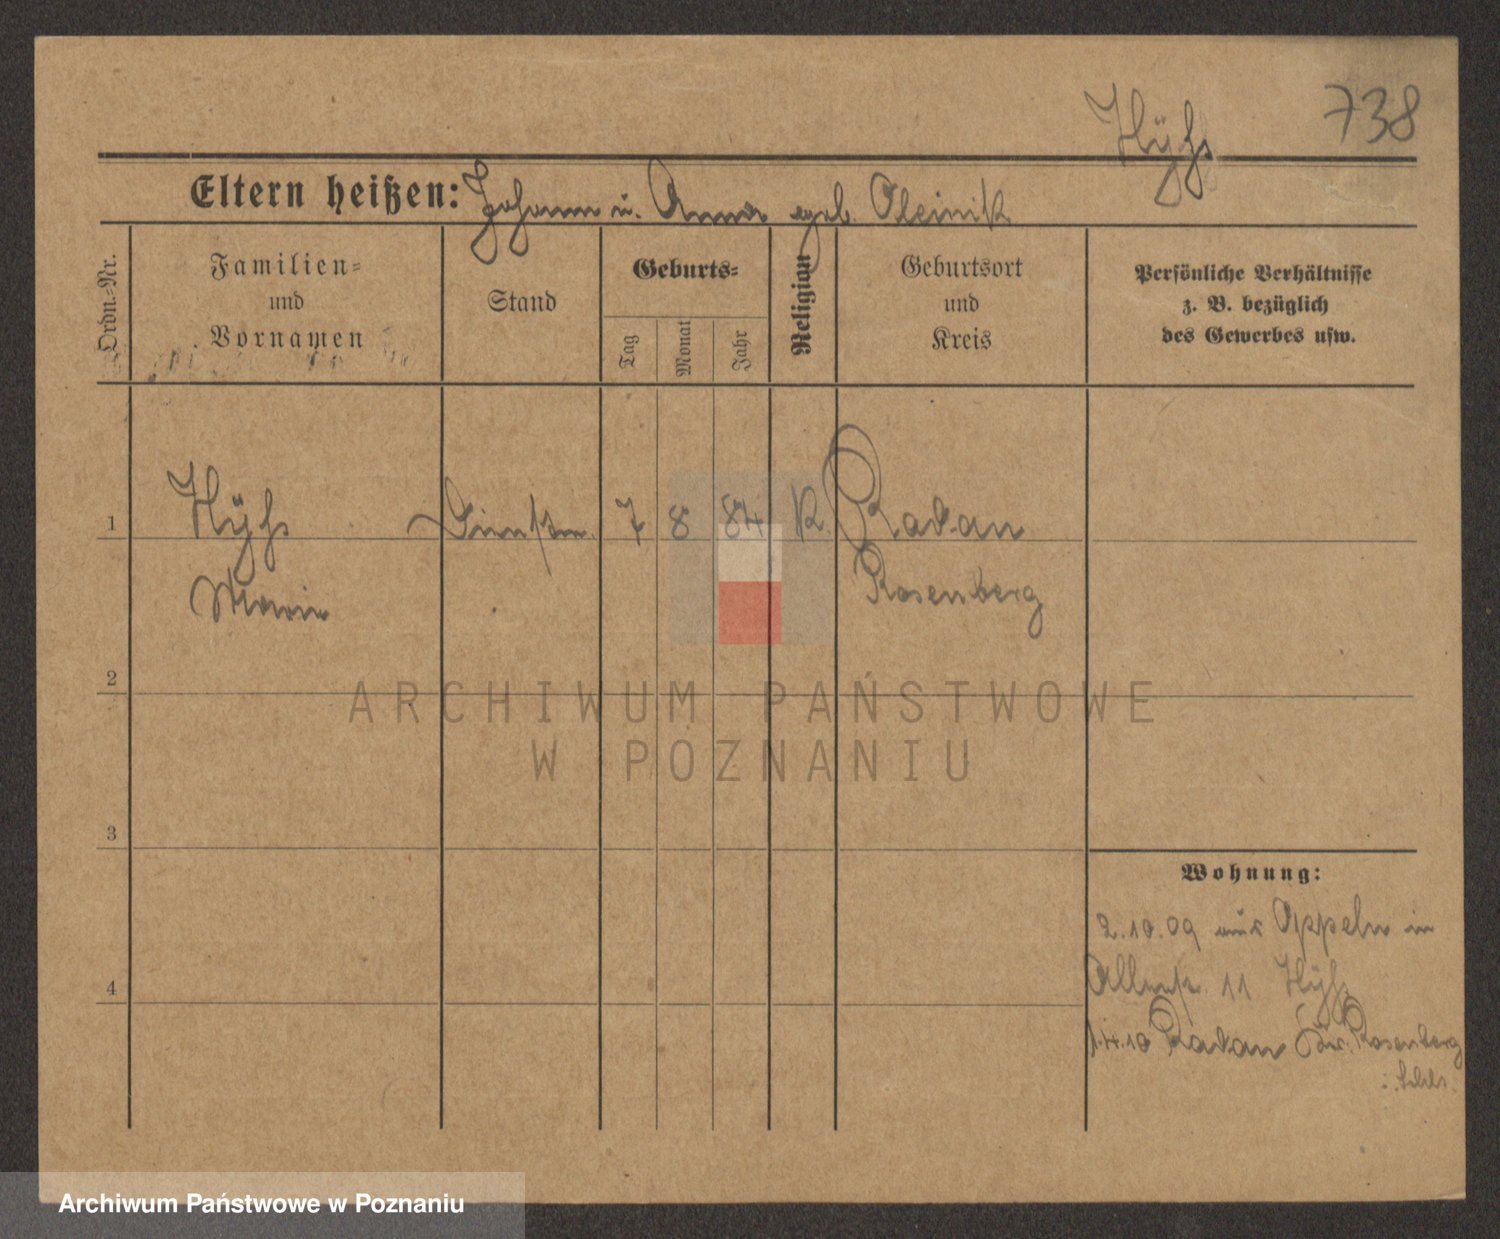 738
Hÿhs
Eltern heißen: Johann u. Anna geb. Oleinik
Ordn.-Nr.
Familien-
und
Vornamen
Stand
Geburts-
Tag
Monat
Jahr
Religian
Geburtsort
und
Kreis
Persönliche Verhältnisse
z. B. bezüglich
des Gewerbes usw.
1
Hÿhs
7 8 84 K.
Radau
Marie
Rosenberg
2
ARCHIWUM PAŃSTWOWE
W POZNANIU
3
Wohnung:
2.10.09 aus Oppeln in
4
11 Hÿhs
1.4.10 Radau Kr. Rosenberg
Archiwum Państwowe w Poznaniu